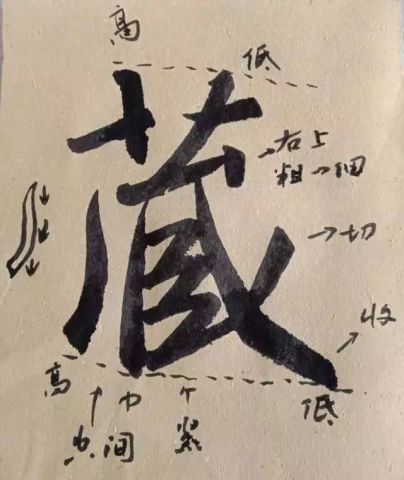 高
低
藏
→右上
粗→细
→切
→收
高
低
间
紧